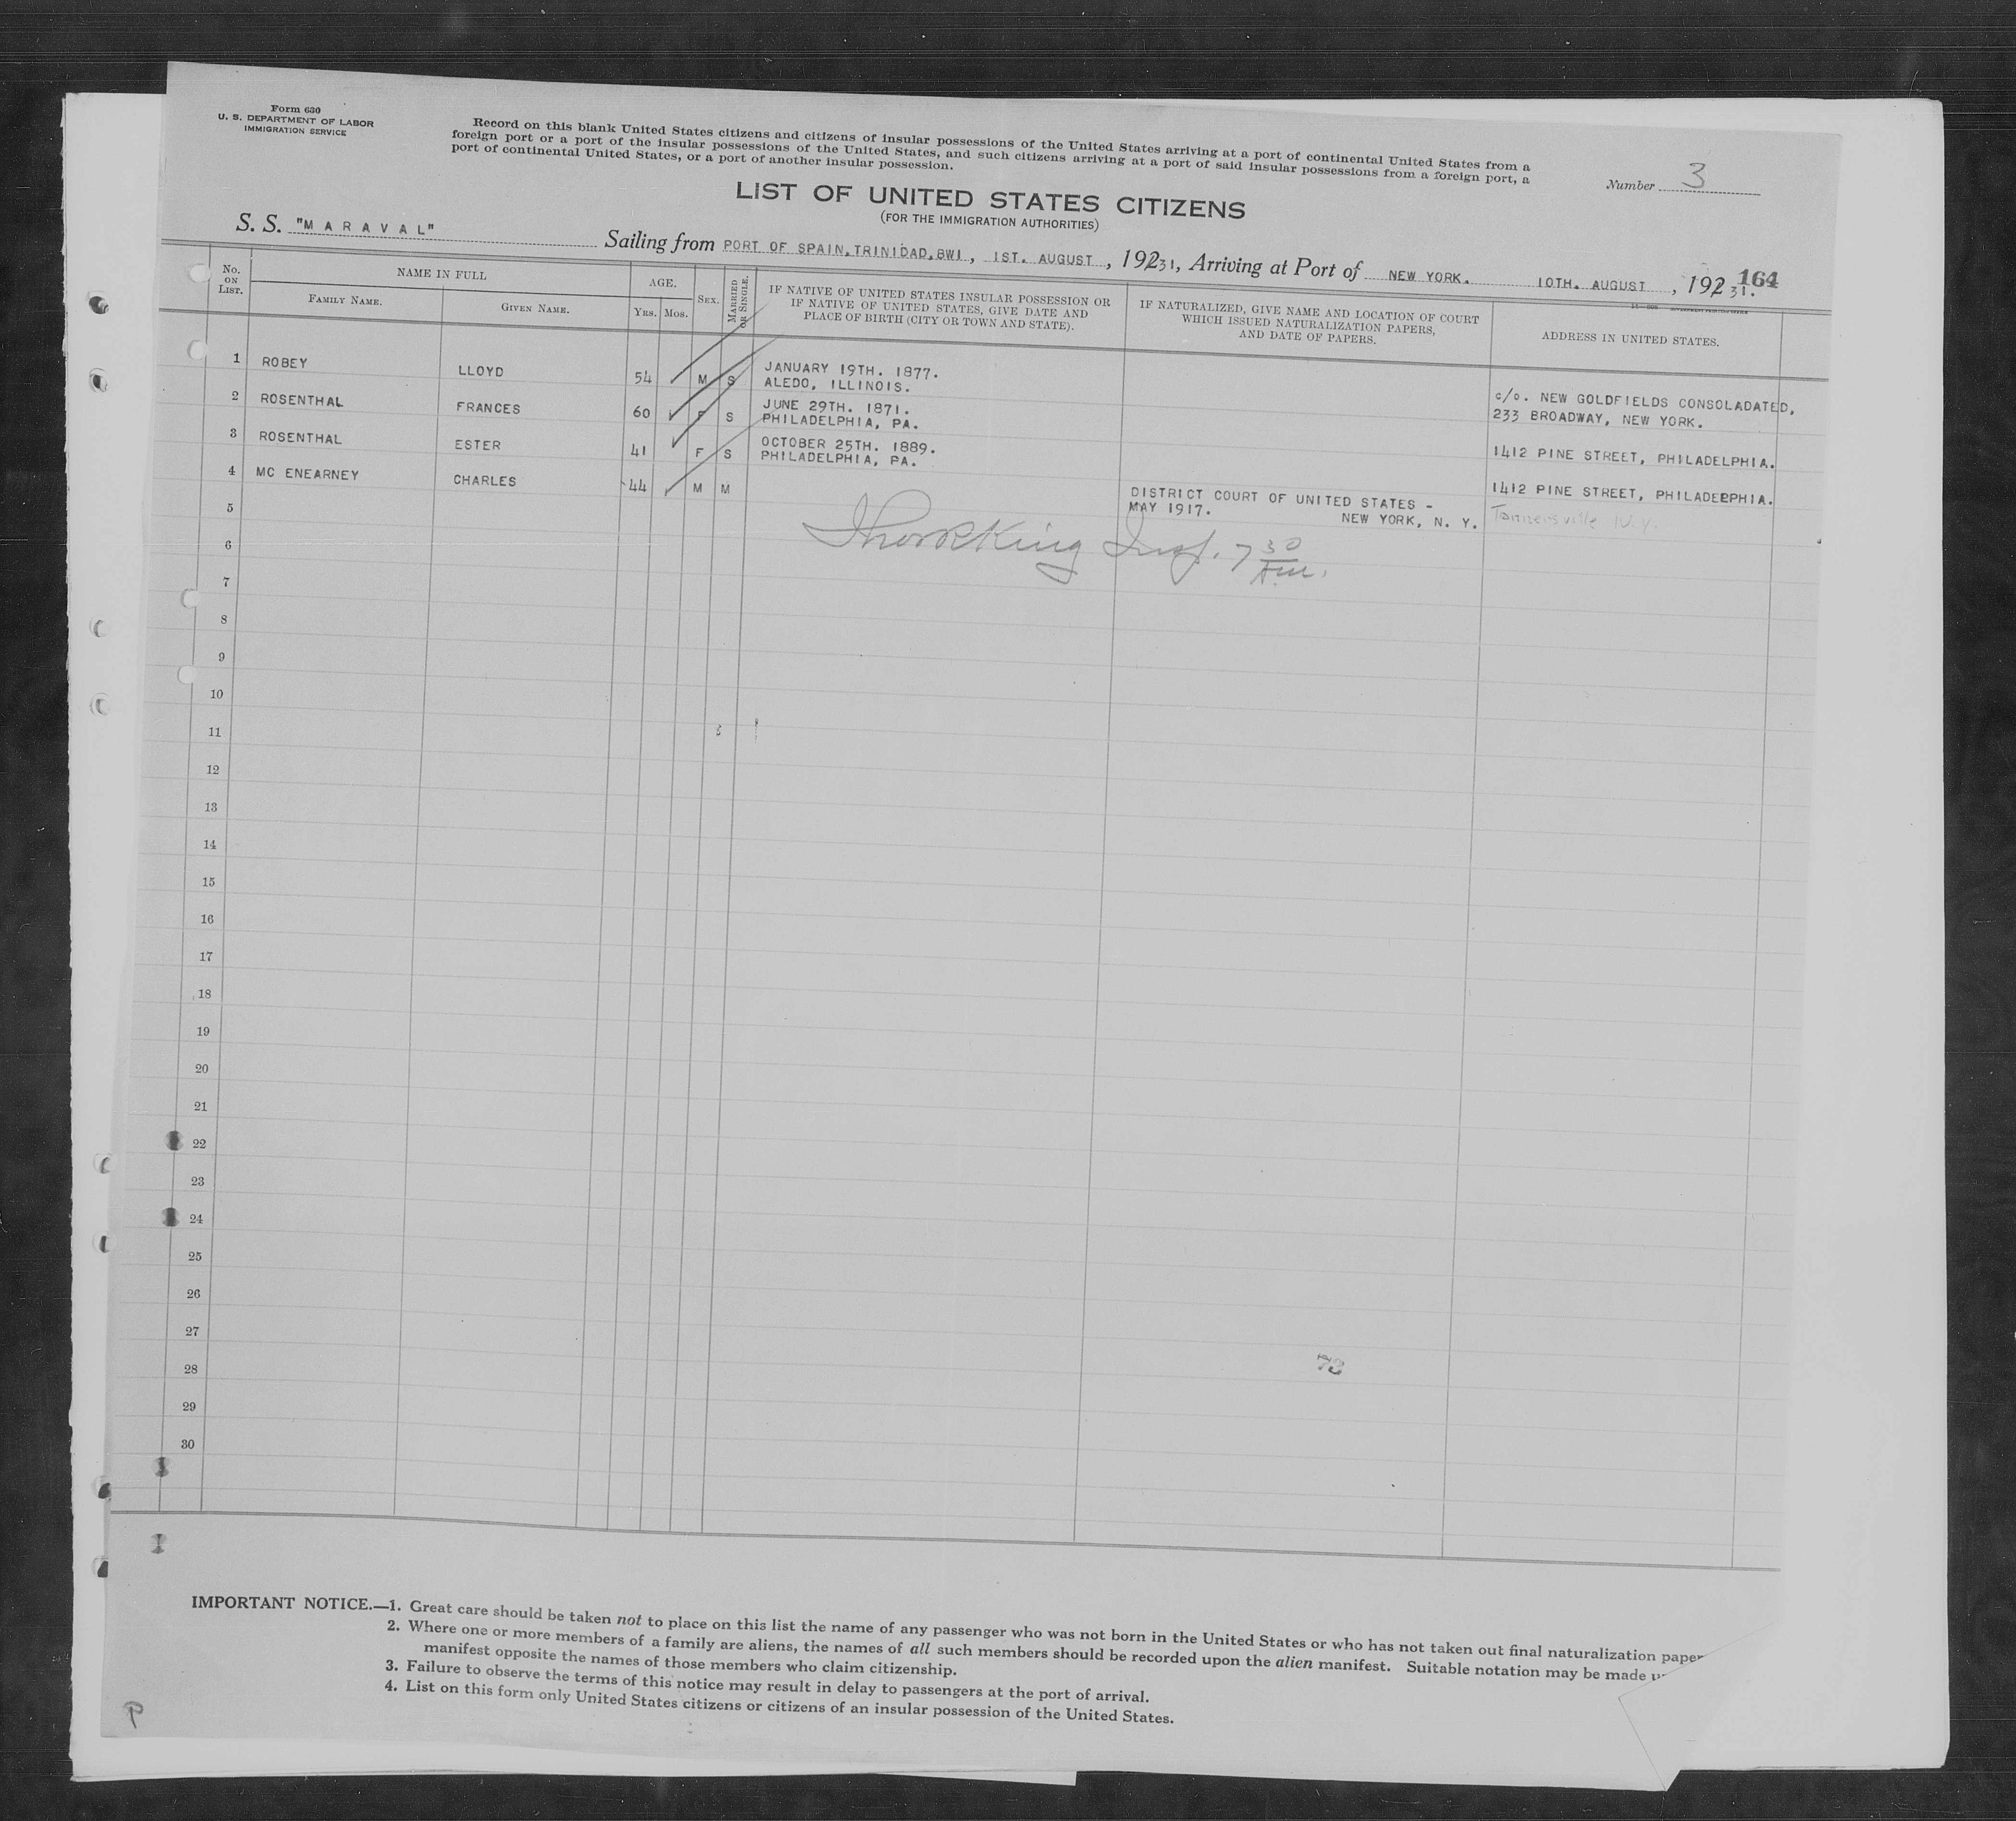 Form 630
U. S. DEPARTMENT OF LABOR
IMMIGRATION SERVICE
Record on this blank United States citizens and citizens of insular possessions of the United States arriving at a port of continental United States from a
foreign port or a port of the insular possessions of the United States, and such citizens arriving at a port of said insular possessions from a foreign port, a
port of continental United States, or a port of another insular possession.
Number 3
LIST OF UNITED STATES CITIZENS
(FOR THE IMMIGRATION AUTHORITIES)
S. S. "MARAVAL" Sailing from PORT OF SPAIN, TRINIDAD, BWI, 1ST. AUGUST, 19231, Arriving at Port of NEW YORK. 10TH. AUGUST, 19231.
164
No. ON LIST.
NAME IN FULL
FAMILY NAME.
GIVEN NAME.
AGE.
YRS. MOS.
SEX.
MARRIED OR SINGLE.
IF NATIVE OF UNITED STATES INSULAR POSSESSION OR
IF NATIVE OF UNITED STATES, GIVE DATE AND
PLACE OF BIRTH (CITY OR TOWN AND STATE).
IF NATURALIZED, GIVE NAME AND LOCATION OF COURT
WHICH ISSUED NATURALIZATION PAPERS,
AND DATE OF PAPERS.
ADDRESS IN UNITED STATES.
1 ROBEY LLOYD 54 M S JANUARY 19TH. 1877.
ALEDO, ILLINOIS.
c/o. NEW GOLDFIELDS CONSOLADATED,
233 BROADWAY, NEW YORK.
2 ROSENTHAL FRANCES 60 F S JUNE 29TH. 1871.
PHILADELPHIA, PA.
1412 PINE STREET, PHILADELPHIA.
3 ROSENTHAL ESTER 41 F S OCTOBER 25TH. 1889.
PHILADELPHIA, PA.
1412 PINE STREET, PHILADEPPHIA.
4 MC ENEARNEY CHARLES 44 M M DISTRICT COURT OF UNITED STATES -
MAY 1917. NEW YORK, N. Y.
Tannersville N.Y.
King Insp. 7 30 A.M.
5
6
7
8
9
10
11
12
13
14
15
16
17
18
19
20
21
22
23
24
25
26
27
28
29
30
73
IMPORTANT NOTICE.—1. Great care should be taken not to place on this list the name of any passenger who was not born in the United States or who has not taken out final naturalization paper
2. Where one or more members of a family are aliens, the names of all such members should be recorded upon the alien manifest. Suitable notation may be made
manifest opposite the names of those members who claim citizenship.
3. Failure to observe the terms of this notice may result in delay to passengers at the port of arrival.
4. List on this form only United States citizens or citizens of an insular possession of the United States.
P